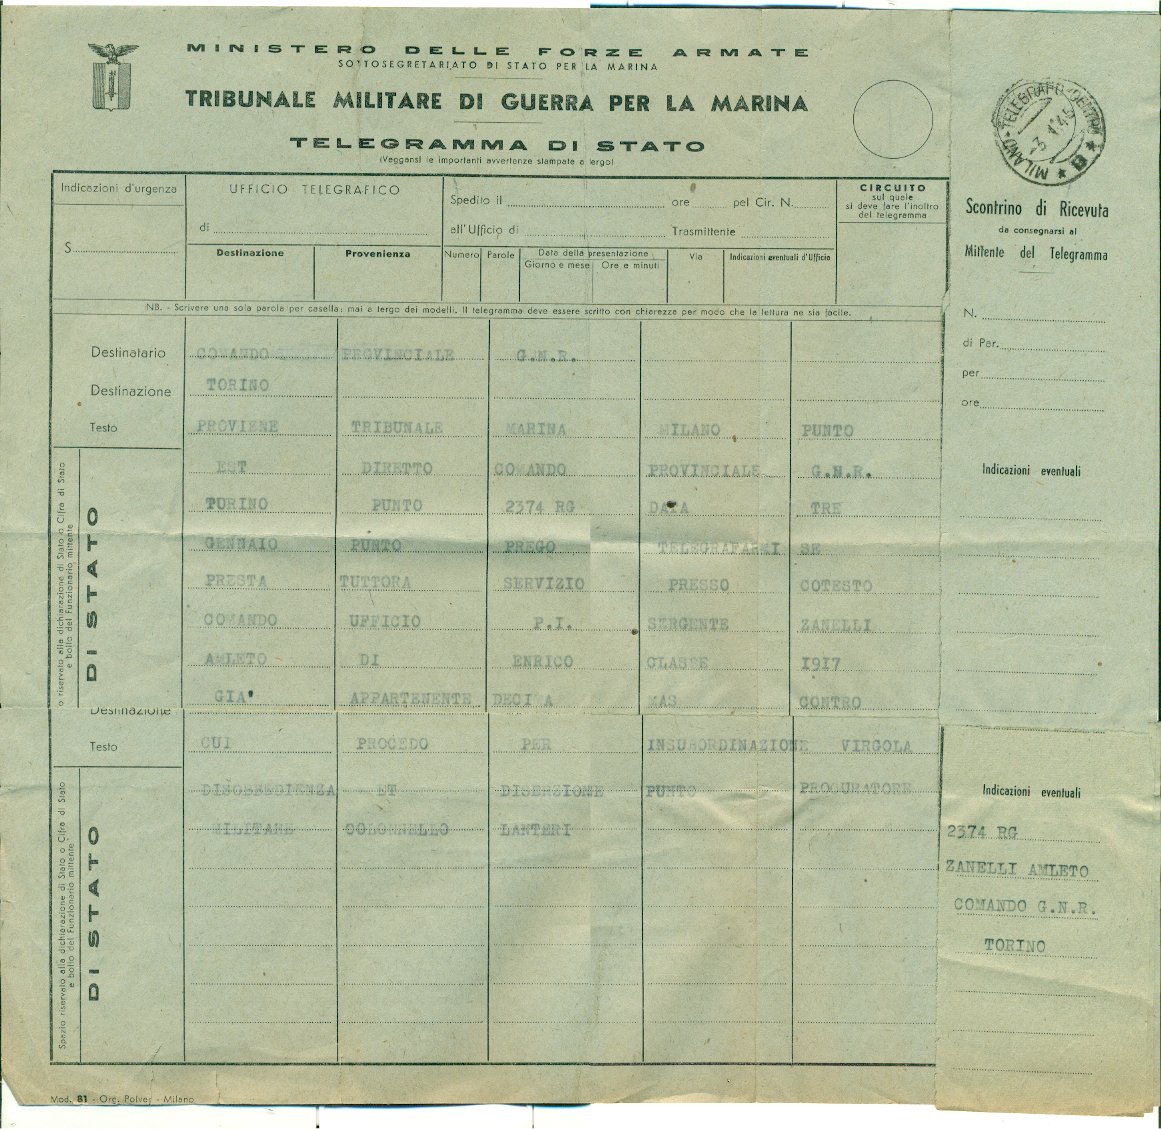 MINISTERO DELLE FORZE ARMATE
SOTTOSEGRETARIATO DI STATO PER LA MARINA
TRIBUNALE MILITARE DI GUERRA PER LA MARINA
TELEGRAMMA DI STATO
(Veggansi le importanti avvertenze stampate a tergo)
Indicazioni d'urgenza
S
UFFICIO TELEGRAFICO
di
Destinazione Provenienza
Spedito il ore pel Cir. N.
all'Ufficio di Trasmittente
Numero Parole Data della presentazione Via Indicazioni eventuali d'Ufficio
Giorno e mese Ore e minuti
CIRCUITO
sul quale
si deve fare l'inoltro
del telegramma
NB. - Scrivere una sola parola per casella; mai a tergo dei modelli. Il telegramma deve essere scritto con chiarezza per modo che la lettura ne sia facile.
Destinatario COMANDO PROVINCIALE G.N.R.
Destinazione TORINO
Testo PROVIENE TRIBUNALE MARINA MILANO PUNTO
EST DIRETTO COMANDO PROVINCIALE G.N.R.
TORINO PUNTO 2374 RG DATA TRE
GENNAIO PUNTO PREGO TELEGRAFARMI SE
PRESTA TUTTORA SERVIZIO PRESSO COTESTO
COMANDO UFFICIO P.I. SERGENTE ZANELLI
AMLETO DI ENRICO CLASSE 1917
GIA' APPARTENENTE DECIMA MAS CONTRO
Destinazione
Testo CUI PROCEDO PER INSUBORDINAZIONE VIRGOLA
DISOBBEDIENZA ET DISERSIONE PUNTO PROCURATORE
MILITARE COLONNELLO LANTERI
o riservato alla dichiarazione di Stato o Cifra di Stato
e bollo del Funzionario mittente
DI STATO
Spazio riservato alla dichiarazione di Stato o Cifra di Stato
e bollo del Funzionario mittente
DI STATO
Mod. 81 - Org. Polver - Milano
MILANO TELEGRAFO CENTRO
Scontrino di Ricevuta
da consegnarsi al
Mittente del Telegramma
N.
di Par.
per
ore
Indicazioni eventuali
Indicazioni eventuali
2374 RG
ZANELLI AMLETO
COMANDO G.N.R.
TORINO